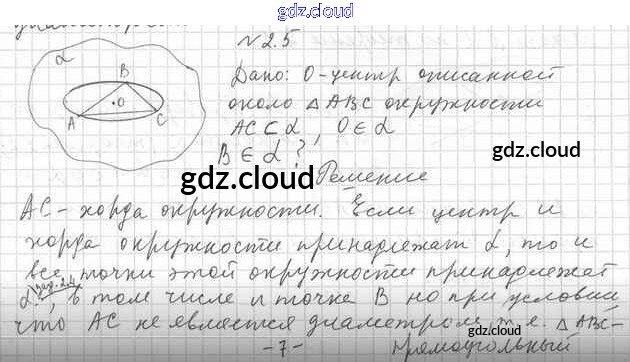 gdz.cloud
№ 2.5
α
B
O
A
C
Дано: O-центр описанной
около △ABC окружности
AC ⊂ α , O ∈ α
B ∈ α ?
gdz.cloud
gdz.cloud
Решение
AC - хорда окружности. Если центр и
хорда окружности принадлежат α, то и
все точки этой окружности принадлежат
α, в том числе и точка B но при условии
что AC не является диаметром, т.е. △ABC-
gdz.cloud
-7-
прямоугольный
gdz.cloud